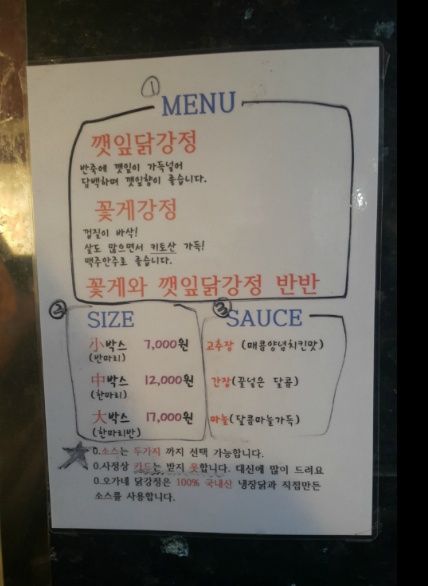 ① MENU
깻잎닭강정
반죽에 깻잎이 가득넣어
담백하며 깻잎향이 좋습니다.
꽃게강정
껍질이 바삭!
살도 많으면서 키토산 가득!
맥주안주로 좋습니다.
꽃게와 깻잎닭강정 반반
② SIZE
小박스 7,000원
(반마리)
中박스 12,000원
(한마리)
大박스 17,000원
(한마리반)
③ SAUCE
고추장 (매콤양념치킨맛)
간장(꿀넣은 달콤)
마늘(달콤마늘가득)
☆ 0.소스는 두가지 까지 선택 가능합니다.
0.사정상 카드는 받지 못합니다. 대신에 많이 드려요
0.오가네 닭강정은 100% 국내산 냉장닭과 직접만든
소스를 사용합니다.